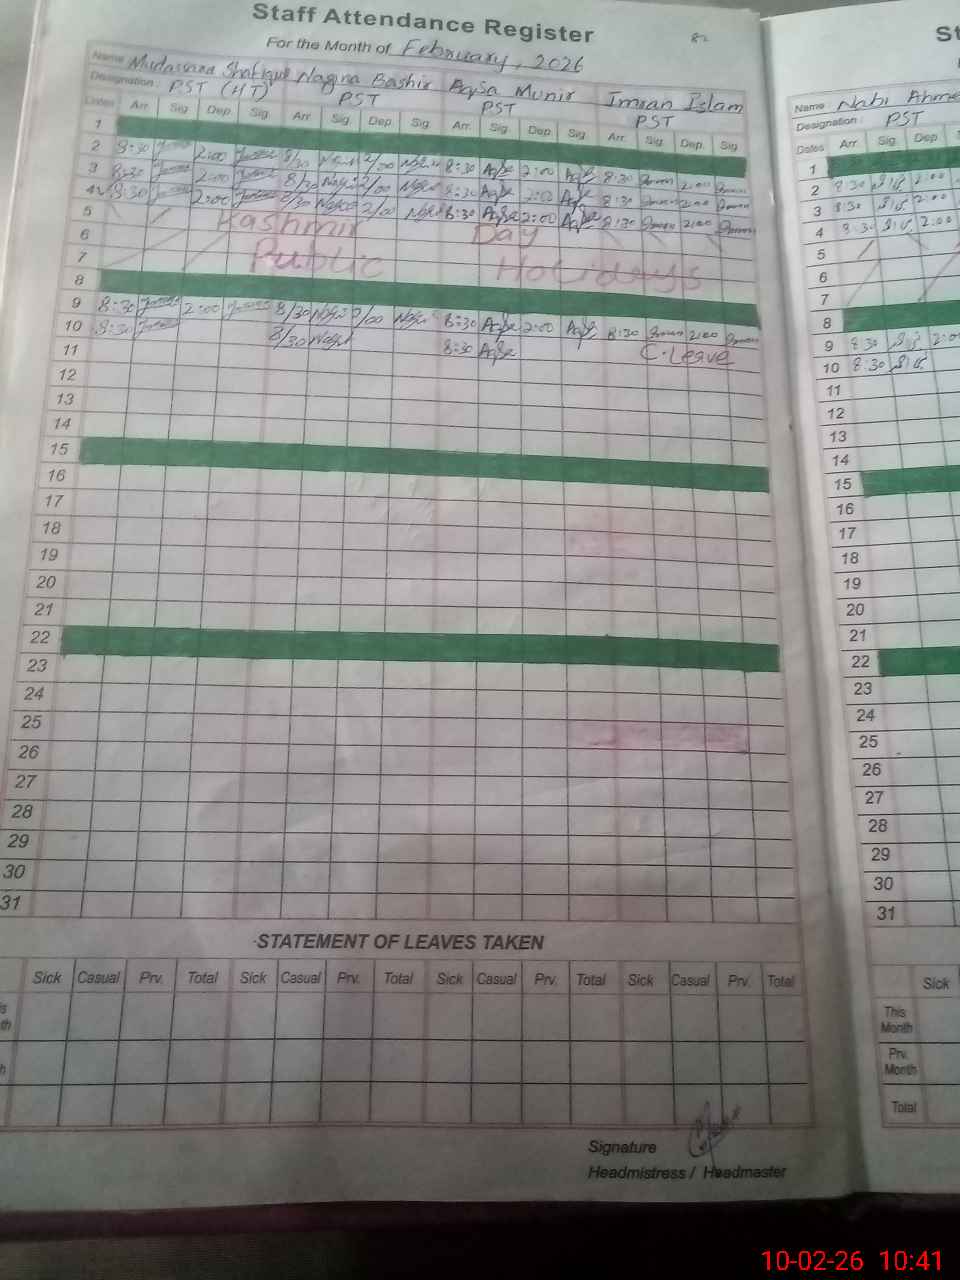 Staff Attendance Register
82
For the Month of February, 2026
Name Mudassara Shafique Nagina Bashir Aqsa Munir Imran Islam
Designation: PST (HT) PST PST PST
Dates Arr. Sig. Dep. Sig. Arr. Sig. Dep. Sig. Arr. Sig. Dep. Sig. Arr. Sig. Dep. Sig.
1
2 8:30 2:00 8/30 Nagina 2/00 Nagina 8:30 Aqsa 2:00 Aqsa 8:30 2:00
3 8:30 2:00 8/30 Nagina 2/00 Nagina 8:30 Aqsa 2:00 Aqsa 8:30 2:00
4 8:30 2:00 8/30 Nagina 2/00 Nagina 8:30 Aqsa 2:00 Aqsa 8:30 2:00
5 Kashmir Day
6
7 Public Holidays
8
9 8:30 2:00 8/30 Nagina 2/00 Nagina 8:30 Aqsa 2:00 Aqsa 8:30 2:00
10 8:30 8/30 Nagina 8:30 Aqsa C.Leave
11
12
13
14
15
16
17
18
19
20
21
22
23
24
25
26
27
28
29
30
31
STATEMENT OF LEAVES TAKEN
Sick Casual Prv. Total Sick Casual Prv. Total Sick Casual Prv. Total Sick Casual Prv. Total
Signature
Headmistress / Headmaster
St
Name Nabi Ahme
Designation: PST
Dates Arr. Sig. Dep
1
2 8:30 2:00
3 8:30 2:00
4 8:30 2:00
5
6
7
8
9 8:30 2:0
10 8:30
11
12
13
14
15
16
17
18
19
20
21
22
23
24
25
26
27
28
29
30
31
Sick
This Month
Prv. Month
Total
10-02-26 10:41